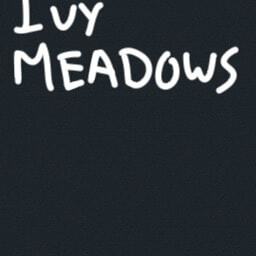 IVY
MEADOWS